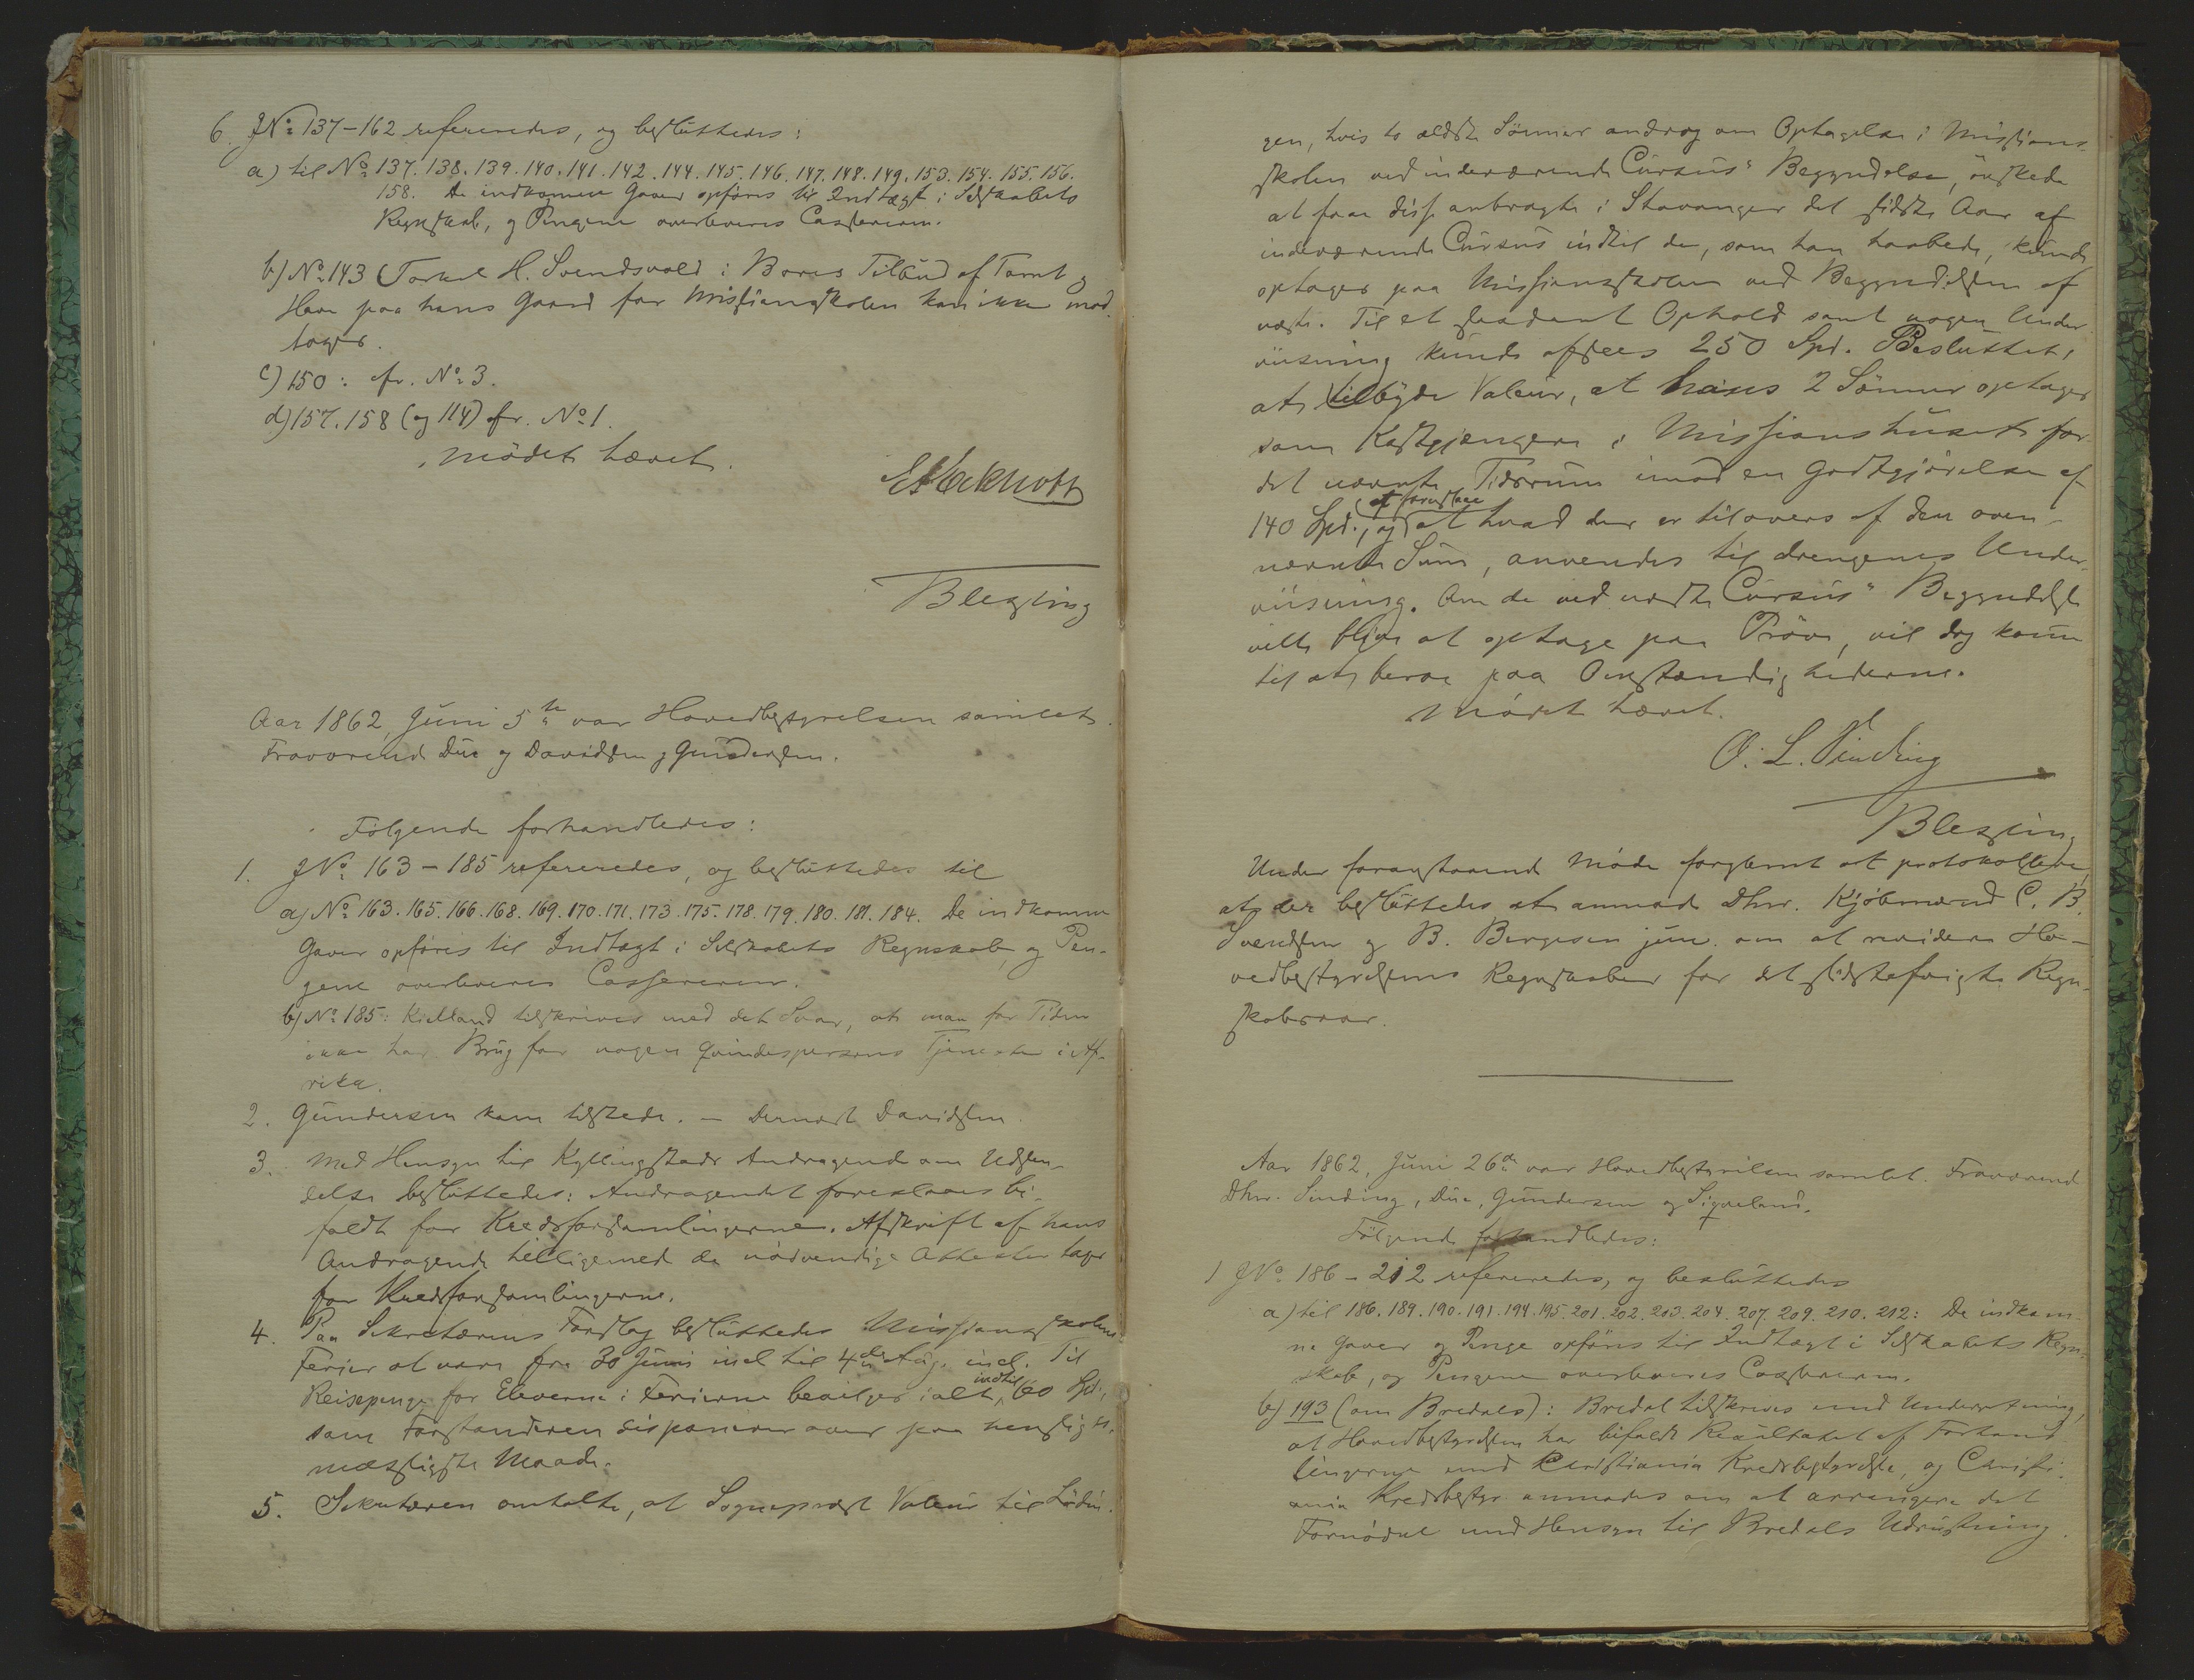 6. JNo 137-162 refereredes, og besluttedes:
a) til No 137. 138. 139. 140. 141. 142. 144. 145. 146. 147. 148. 149. 153. 154. 155. 156.
158. De indkomne Gaver opføres til Indtægt i Selskabets
Regnskab, og Pengene overleveres Cassereren.
b) No 143 Torkel H. Svendsvold i Bores Tilbud af Tomt og
Have paa hans Gaard for Missionsskolen kan ikke mod-
tages.
c) 150: cfr. No 3.
d) 157. 158 (og 114) cfr. No 1.
Mødet hævet.
Blessing
Aar 1862, Juni 5te var Hovedbestyrelsen samlet.
Fraværende Due og Davidsen og Gundersen.
Følgende forhandledes:
1. JNo 163-185 refereredes, og besluttedes til
a) No 163. 165. 166. 168. 169. 170. 171. 173. 175. 178. 179. 180. 181. 184. De indkomne
Gaver opføres til Indtægt i Selskabets Regnskab, og Pen-
gene overleveres Cassereren.
b) No 185: Kielland tilskrives med det Svar, at man for Tiden
ikke har Brug for nogen Qvindespersons Tjeneste i Af-
rika.
2. Gundersen kom tilstede. - Dernæst Davidsen.
3. Med Hensyn til Kyllingstads Andragende om Udsen-
delse besluttedes: Andragendet foreslaaes bi-
faldt for Kredsforsamlingerne. Afskrift af hans
Andragende tilligemed de nødvendige Attester tages
for Kredsforsamlingerne.
4. Paa Sekretærens Forslag besluttedes Missionsskolens
Ferier at vare fra 30 Juni incl til 4de Aug. incl. Til
Reisepenge for Eleverne i Ferierne bevilges ialt indtil 60 Spd.,
som Forstanderen disponerer over paa hensigts-
mæssigste Maade.
5. Sekretæren omtalte, at Sogneprest Valeur til Lødin-
gen, hvis to ældste Sønner androg om Optagelse i Missions-
skolen ved indeværende Cursus' Begyndelse, ønskede
at faae disse anbragte i Stavanger det sidste Aar af
indeværende Cursus indtil de, som han haabede, kunde
optages paa Missionsskolen ved Begyndelsen af
næste. Til et saadant Ophold samt nogen Under-
viisning kunde afsees 250 Spd. Besluttet,
at tilbyde Valeur, at hans 2 Sønner optages
som Kostgjængere i Missionshuset for
det nævnte Tidsrum imod en Godtgjørelse af
140 Spd., og at foreslaae at hvad der er tilovers af den oven-
nævnte Sum, anvendes til Drengenes Under-
viisning. Om de ved næste Cursus' Begyndelse
ville blive at optage paa Prøve, vil dog komme
til at beroe paa Omstændighederne.
Mødet hævet.
O. L. Sinding
Blessing
Under foranstaaende Møde forglemt at protokollere,
at der besluttedes at anmode Dhrr. Kjøbmænd C. B.
Svendsen og B. Bergesen jun. om at revidere Ho-
vedbestyrelsens Regnskaber for det sidstafvigte Regn-
skabsaar.
Aar 1862, Juni 26de var Hovedbestyrelsen samlet. Fraværende
Dhrr. Sinding, Due, Gundersen og Sigveland.
Følgende forhandledes:
1 JNo 186-212 refereredes, og besluttedes
a) til 186. 189. 190. 191. 194. 195. 201. 202. 203. 204. 207. 209. 210. 212: De indkom-
ne Gaver og Penge opføres til Indtægt i Selskabets Regn-
skab, og Pengene overleveres Cassereren.
b) 193 (om Bredals): Bredal tilskrives med Underretning,
at Hovedbestyrelsen har bifaldt Resultatet af Forhand-
lingerne med Christiania Kredsbestyrelse, og Christi-
ania Kredsbestyr. anmodes om at arrangere det
Fornødne med Hensyn til Bredals Udrustning.